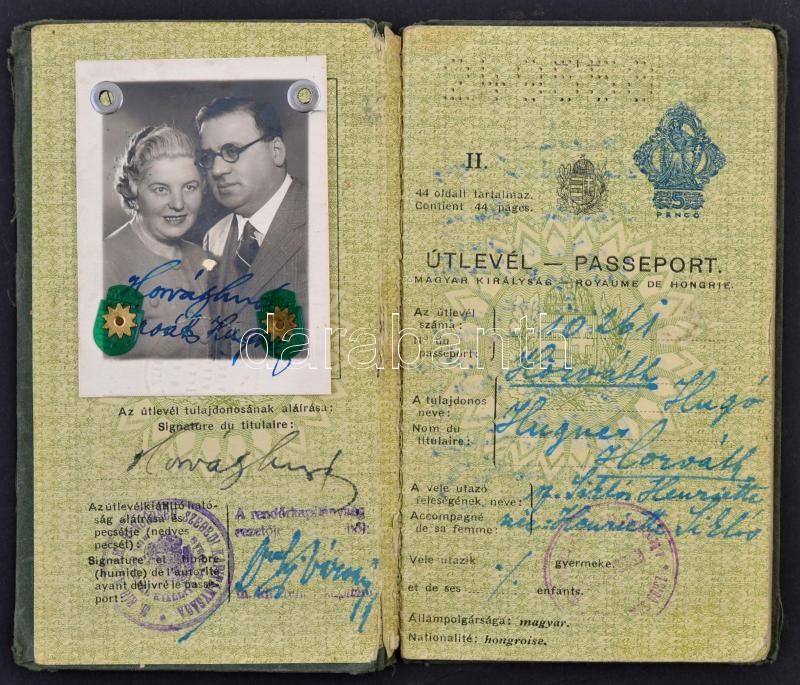 Az útlevél tulajdonosának aláírása:
Signature du titulaire:
Az útlevélkiállító ható-
ság aláírása és
pecsétje (nedves
pecsét):
Signature et timbre
(humide) de l'autorité
ayant délivré le passe-
port:
A rendőrkapitányság
vezetője
II.
44 oldalt tartalmaz.
Contient 44 pages.
5
PENGŐ
ÚTLEVÉL — PASSEPORT.
MAGYAR KIRÁLYSÁG — ROYAUME DE HONGRIE.
Az útlevél
száma:
N° du
passeport:
10.261
Horváth
Hugó
A tulajdonos
neve:
Nom du
titulaire:
Hugues
Horváth
A vele utazó
feleségének, neve:
Siklós Henriette
Accompagné
de sa femme:
née Henriette Siklós
Vele utazik
gyermeke.
et de ses
enfants.
Állampolgársága: magyar.
Nationalité: hongroise.
darabanth